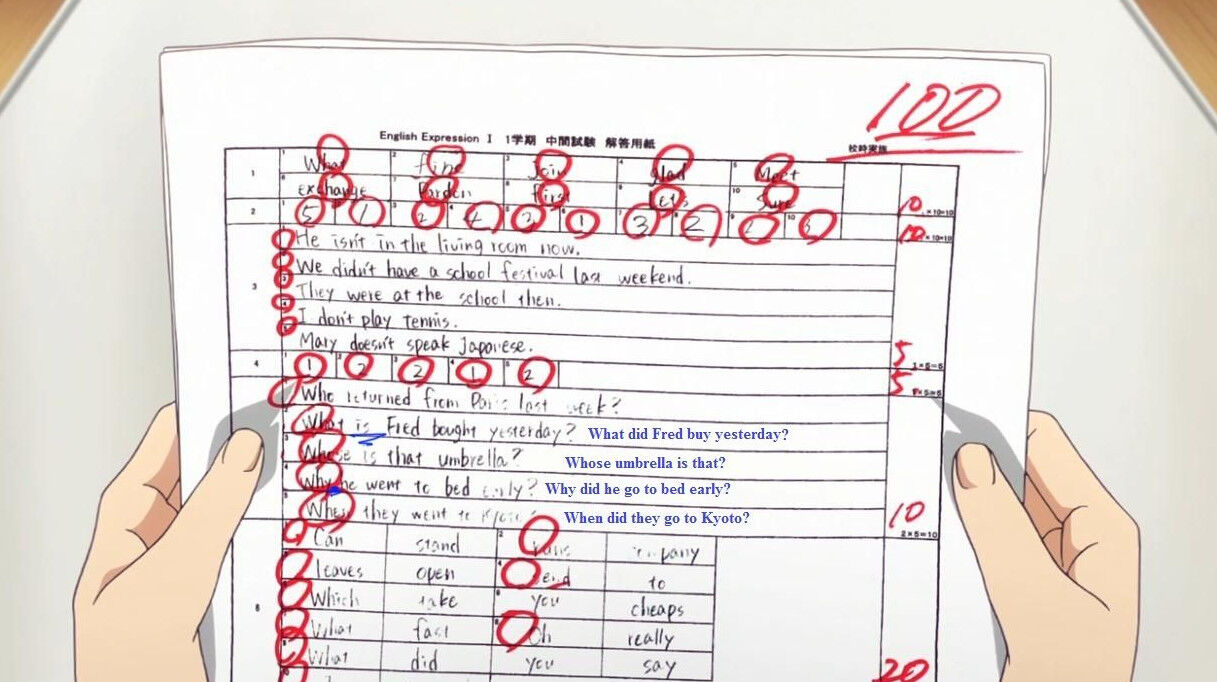 100
English Expression I 1学期 中間試験 解答用紙
1 1 What 2 find 3 Join 4 glad 5 Meet
6 exchange 7 Pardon 8 first 9 Let's 10 Sure 10 ×10=10
2 1 5 1 3 2 4 4 5 2 6 1 7 3 8 2 9 2 10 3 10 ×10=10
He isn't in the living room now.
We didn't have a school festival last weekend.
3 They were at the school then.
I don't play tennis.
Mary doesn't speak Japanese. 5 1×5=5
4 1 1 2 2 3 2 4 1 5 2 5 1×5=5
Who returned from Paris last week?
What is Fred bought yesterday? What did Fred buy yesterday?
Whose is that umbrella? Whose umbrella is that?
Why he went to bed early? Why did he go to bed early?
When they went to Kyoto? When did they go to Kyoto? 10 2×5=10
Can stand
leaves open to
6 Which take you cheaps
What fast Oh really
What did you say 20